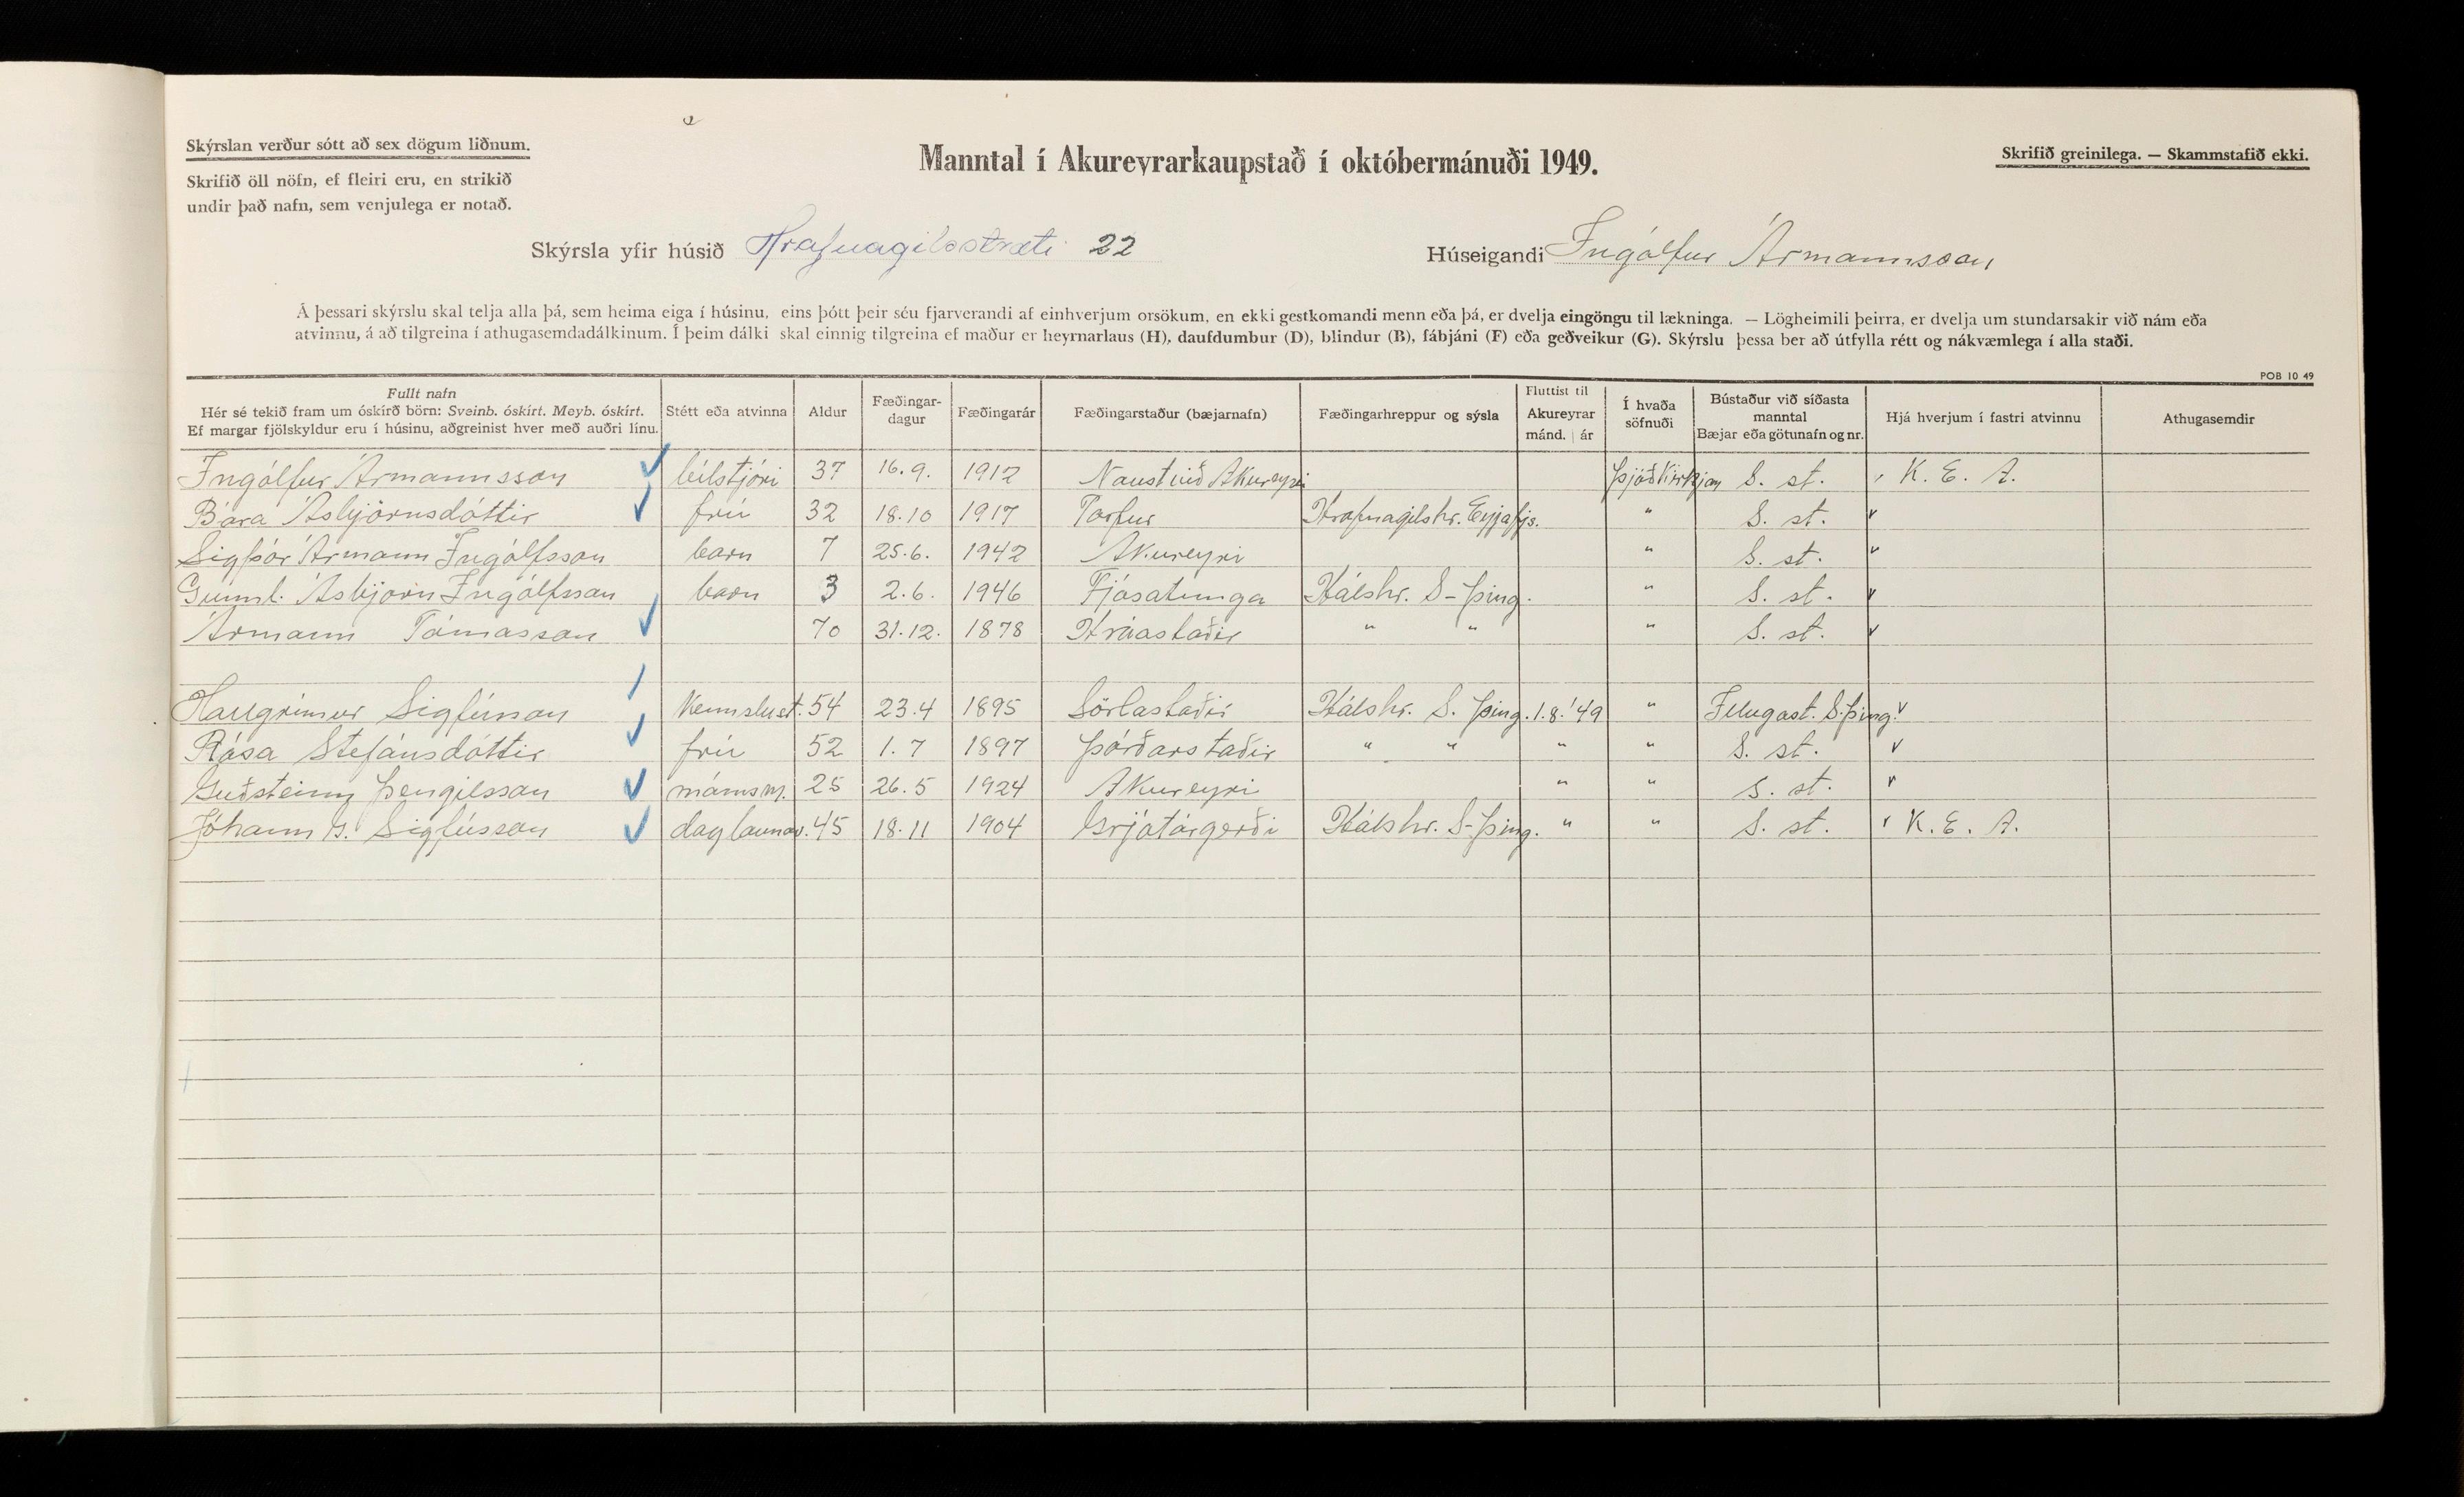 Skýrslan verður sótt að sex dögum liðnum.
Skrifið öll nöfn, ef fleiri eru, en strikið
undir það nafn, sem venjulega er notað.
Manntal í Akureyrarkaupstað í októbermánuði 1949.
Skrifið greinilega. — Skammstafið ekki.
Skýrsla yfir húsið Hrafnagilsstræti 22
Húseigandi Ingólfur Ármannsson
Á þessari skýrslu skal telja alla þá, sem heima eiga í húsinu, eins þótt þeir séu fjarverandi af einhverjum orsökum, en ekki gestkomandi menn eða þá, er dvelja eingöngu til lækninga. — Lögheimili þeirra, er dvelja um stundarsakir við nám eða
atvinnu, á að tilgreina í athugasemdadálkinum. Í þeim dálki skal einnig tilgreina ef maður er heyrnarlaus (H), daufdumbur (D), blindur (B), fábjáni (F) eða geðveikur (G). Skýrslu þessa ber að útfylla rétt og nákvæmlega í alla staði.
POB 10 49
Fullt nafn
Hér sé tekið fram um óskírð börn: Sveinb. óskírt. Meyb. óskírt.
Ef margar fjölskyldur eru í húsinu, aðgreinist hver með auðri línu.
Stétt eða atvinna
Aldur
Fæðingar-
dagur
Fæðingarár
Fæðingarstaður (bæjarnafn)
Fæðingarhreppur og sýsla
Fluttist til
Akureyrar
mánd. | ár
Í hvaða
söfnuði
Bústaður við síðasta
manntal
Bæjar eða götunafn og nr.
Hjá hverjum í fastri atvinnu
Athugasemdir
Ingólfur Ármannsson bílstjóri 37 16.9. 1912 Naust við Akureyri Þjóðkirkjan S. st. K. E. A.
Bára Ásbjörnsdóttir frú 32 18.10 1917 Torfur Hrafnagilshr. Eyjafjs. " S. st.
Sigþór Ármann Ingólfsson barn 7 25.6. 1942 Akureyri " S. st.
Gunnl. Ásbjörn Ingólfsson barn 3 2.6. 1946 Fjósatunga Hálshr. S-Þing. " S. st.
Ármann Tómasson 70 31.12. 1878 Hróastaðir " " " S. st.
Hallgrímur Sigfússon 54 23.4 1895 Sörlastaðir Hálshr. S. Þing. 1.8.'49 " Illugast. S.Þing.
Rósa Stefánsdóttir frú 52 1.7 1897 Þórðarstaðir " " " " S. st.
Guðsteinn Þengilsson námsm. 25 26.5 1924 Akureyri " " S. st.
Jóhann G. Sigfússon daglaunav. 45 18.11 1904 Grjótárgerði Hálshr. S-Þing. " " S. st. K. E. A.